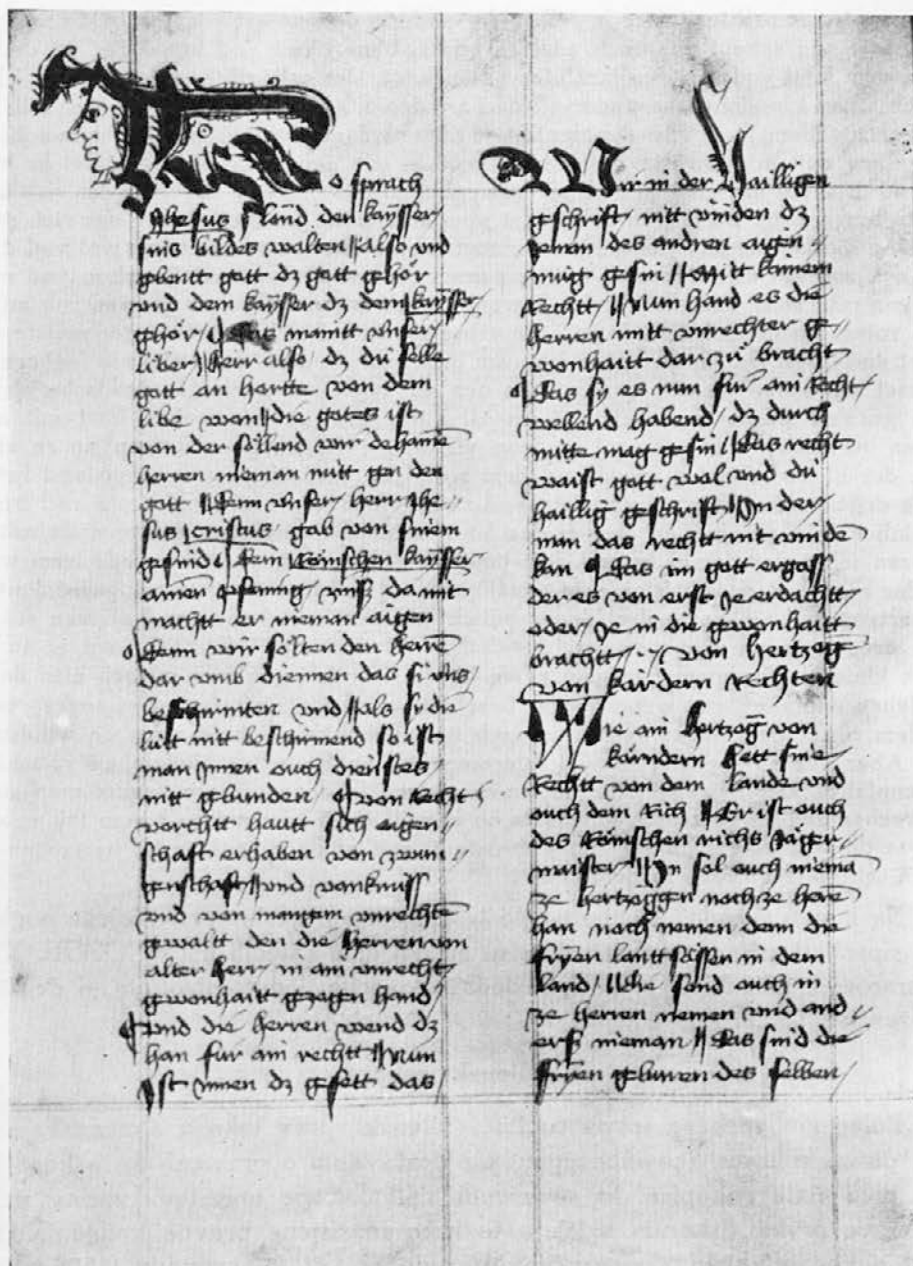 o sprach
Jhesus / länd den kaysser
sins bildes walten // also vnd
gbentt gatt dz gatt gehör
vnd dem kaysser dz dem kaysser
gehör / Das manitt vnser
liber herr also dz dü selle
gatt an hortte von dem
libe won die gates ist
von der söllend wir dehainē
herren nieman nitt gen den
gott // Denn vnser herr Jhe
sus cristus gab von sinem
gesind Dem Römschen kaysser
ainen pfennig / vnd da mit
machtt er nieman aigen
Denn wir sölten den herrē
dar vmb diennen das si vns
beschirmten vnd // als sy die
lütt nitt beschirmend so ist
man Jnnen ouch dienstes
nitt gebunden / von Recht
vorchtt hautt sich aigen //
schaft erhaben von zwan //
genschaft // vnd vanknuss
vnd von mangem vnrechtē
gewaltt den die herren von
alter herr in ain vnrecht
gewonhaitt gezogen hand
vnd die herren wend dz
han fur ain rechtt // Nun
Jst Jnnen dz gesett das
Wir in der hailligen
geschrift / nitt vinden dz
yeman des andren aigen //
mug gesin // Mitt kainem
Rechtt // Nun hand es die
herren mitt vnrechter ge //
wonhaitt dar zü bracht
Das sy es nun für ain Recht /
wellend habend / dz durch
nitte mag gesin // Das recht
waist gott wol vnd dü
haillig geschrift // Jn der
man das rechtt nit vindē
kan / Das im gott ergass
der es von erst Je erdachtt
oder / Je in die gewonhaitt
brachtt / ·· / von hertzog
von kärdern Rechten
Wie ain hertzog von
kärndern hett sine
Rechtt von dem lande vnd
ouch dem Rich // Er ist ouch
des Römschen richs Jäger
maister // Jn sol ouch niemā
ze hertzoggen noch ze herē
han noch nemen denn die
fryen lanttsässen in dem
land / // die sond ouch in
ze herren nemen vnd and
erss nieman // Das sind die
fryen geburen des selben /